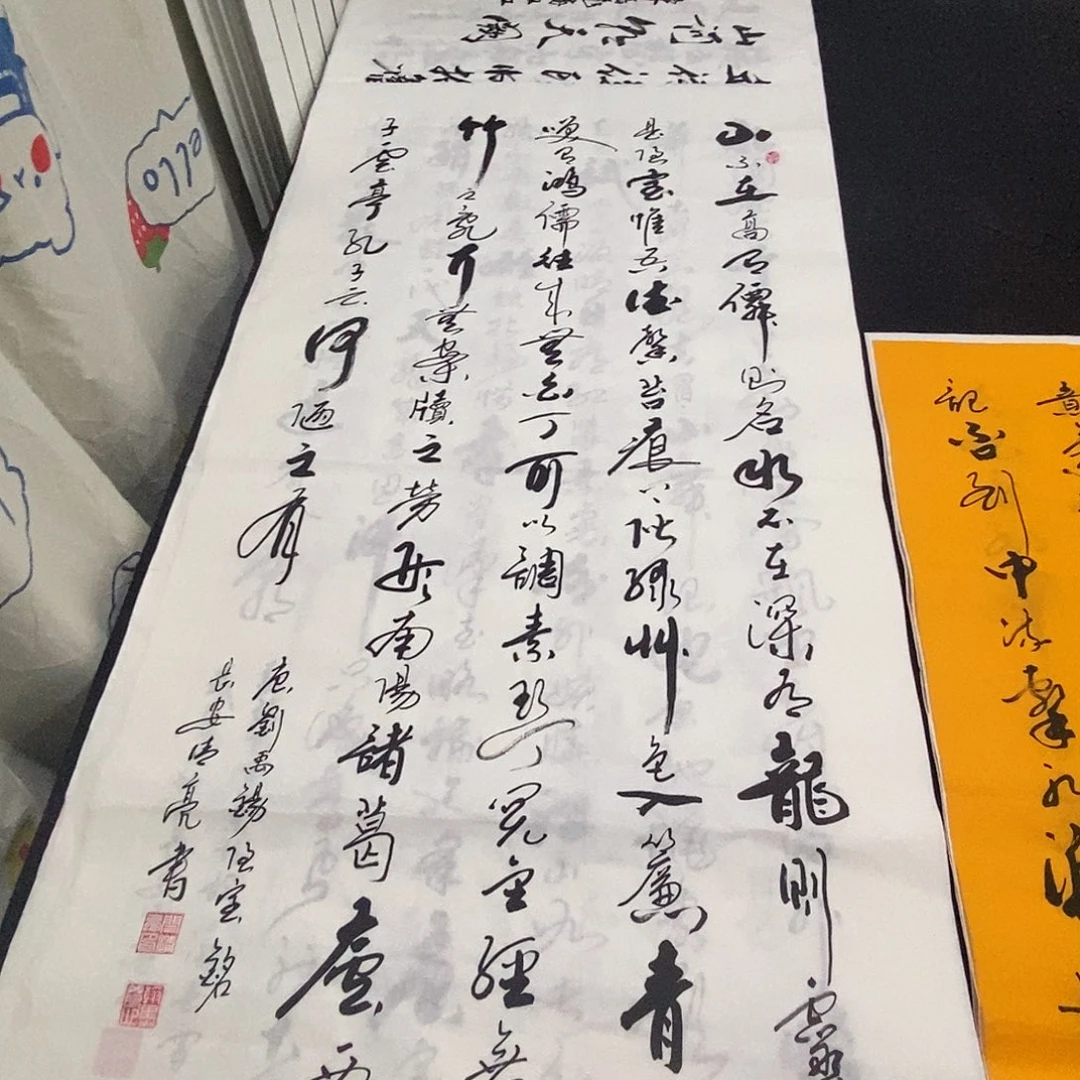 山不在高有僊則名水不在深有龍則靈
是陋室惟吾德馨苔痕上階綠艸色入簾青
笑有鴻儒往來無白丁可以調素琴閱金經無
竹之亂耳無案牘之勞形南陽諸葛廬西
子雲亭孔子云何陋之有
唐劉禹錫陋室銘
長安清亮書
記否到中流擊水浪